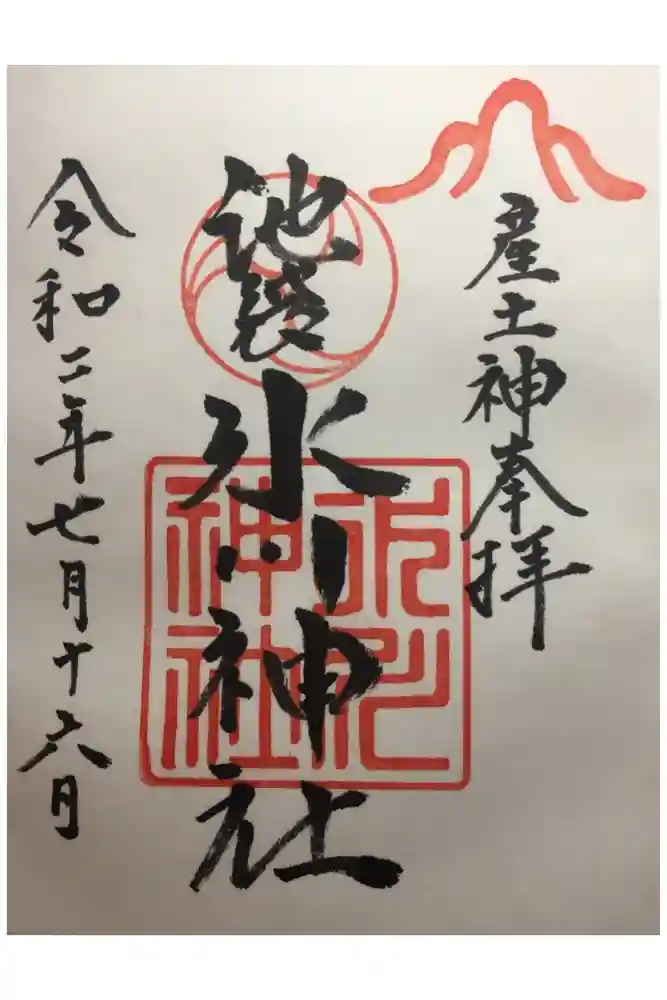 産土神奉拝
池袋氷川神社
氷川
神社
令和二年七月十六日